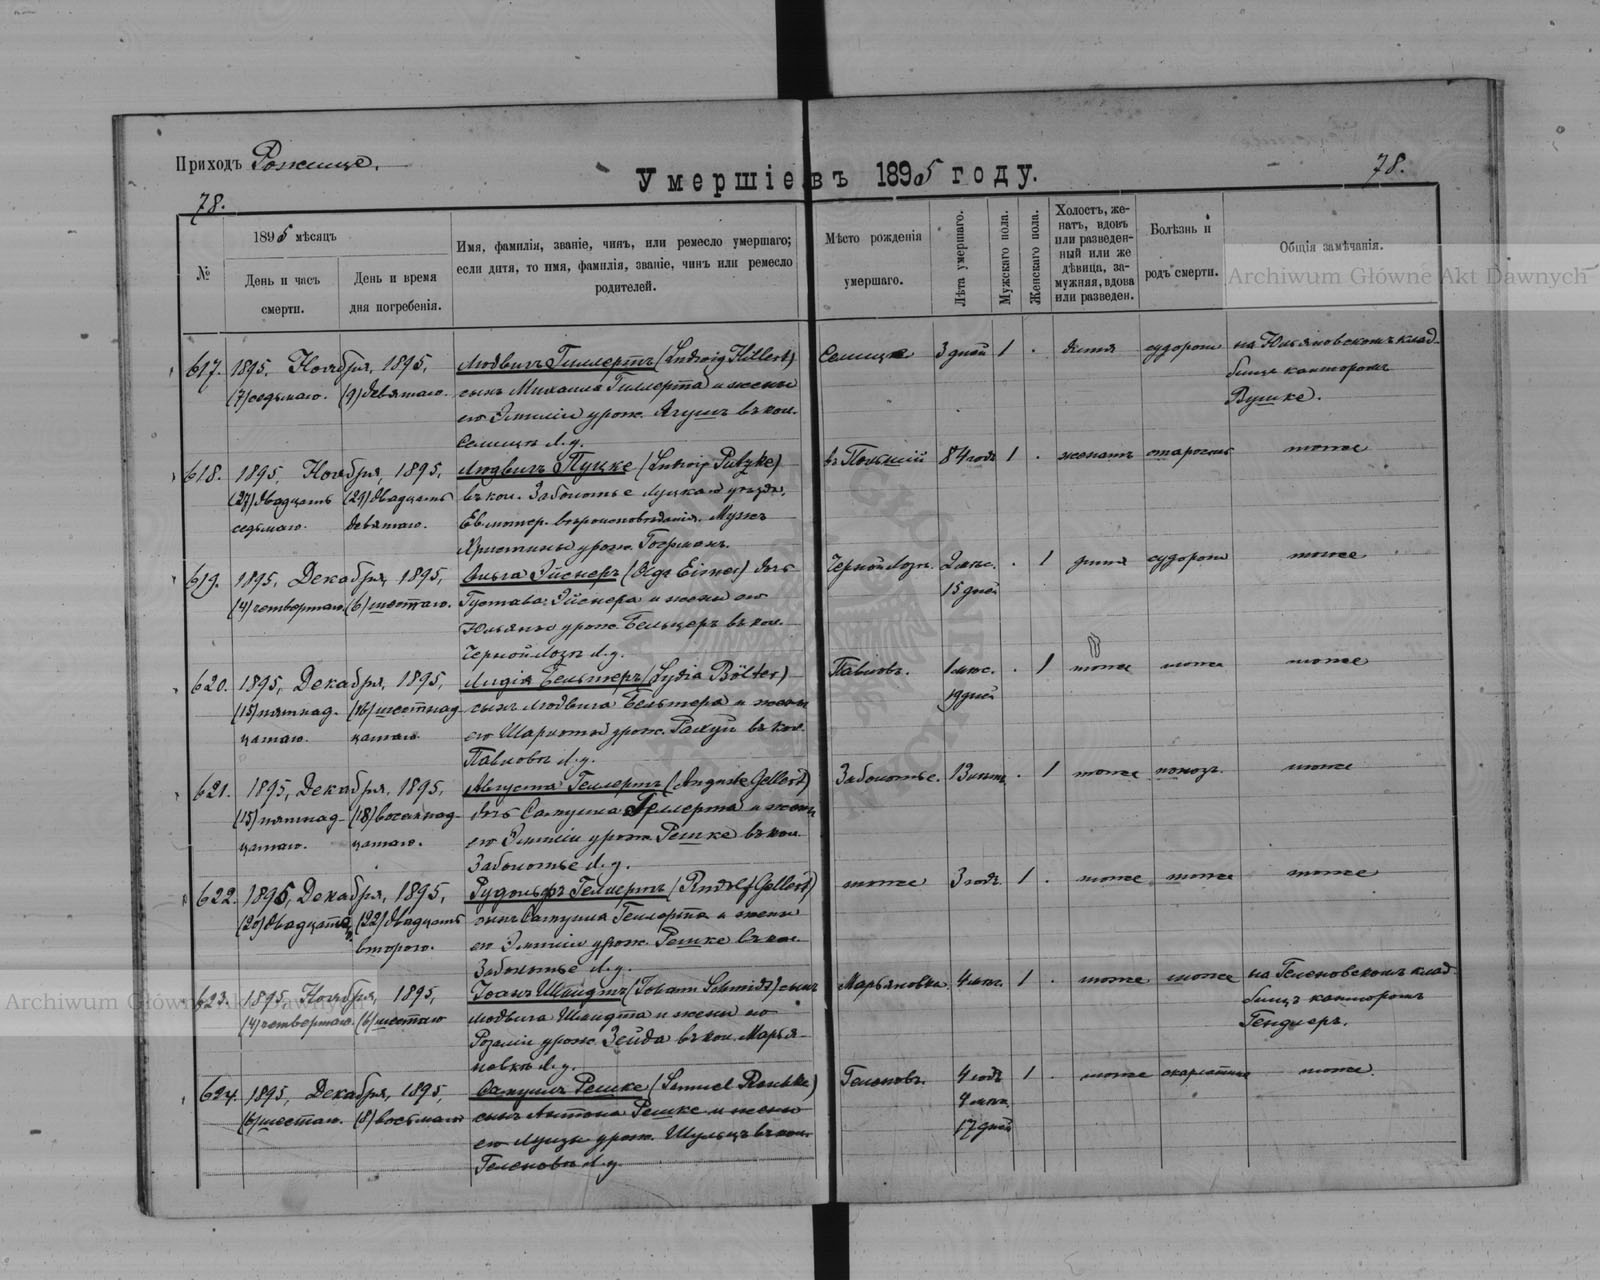 Приходъ Рожище.
Умершіе въ 1895 году.
78.
78.
№
1895 мѣсяцъ
День и часъ смерти.
День и время дня погребенія.
Имя, фамилія, званіе, чинъ, или ремесло умершаго;
если дитя, то имя, фамилія, званіе, чинъ или ремесло
родителей.
Мѣсто рожденія
умершаго.
Лѣта умершаго.
Мужскаго пола.
Женскаго пола.
Холостъ, же-
натъ, вдовъ
или разведен-
ный или же
дѣвица, за-
мужняя, вдова
или разведен.
Болѣзнь и
родъ смерти.
Общія замѣчанія.
Archiwum Główne Akt Dawnych
617. 1895, Ноября, 1895, Людвигъ Гиллертъ (Ludwig Hillert) 3 дней 1 . дитя судороги на Юльяновскомъ клад-
(7) седьмаго. (9) девятаго. сынъ Михаила Гиллерта и жены бищѣ канторомъ
его Эмиліи урож. Ягушъ въ кол.
Л.у.
618. 1895, Ноября, 1895, Людвигъ Пуцке (Ludwig Putzke) 84 года 1 . женатъ старость тоже
(27) двадцать (29) двадцать въ кол. Заболотье Луцкаго уѣзда,
седьмаго. девятаго. Ев. лютер. вѣроисповѣданія. Мужъ
Христины урож. Гофманъ.
619. 1895, Декабря, 1895, Ольга Эйснеръ (Olga Eisner) дочь 2 мѣс. . 1 дитя судороги тоже
(4) четвертаго. (6) шестаго. Густава Эйснера и жены его 15 дней
Юльяны урож. Бельцеръ въ кол.
Л.у.
620. 1895, Декабря, 1895, Лидія Бельтеръ (Lydia Bölter) Павловъ. 1 мѣс. . 1 тоже тоже тоже
(15) пятнад- (16) шестнад- сынъ Людвига Бельтера и жены 19 дней
цатаго. цатаго. его Шарлоты урож. въ кол.
Павловъ Л.у.
621. 1895, Декабря, 1895, Августа Геллертъ (Auguste Gellert) Заболотье. . 1 тоже тоже
(15) пятнад- (18) восемнад- дочь Самуила Геллерта и жены
цатаго. цатаго. его Эмиліи урож. Решке въ кол.
Заболотье Л.у.
622. 1895, Декабря, 1895, Рудольфъ Геллертъ (Rudolf Gellert) тоже 3 года 1 . тоже тоже тоже
(20) двадцатаго (22) двадцать сынъ Самуила Геллерта и жены
втораго. его Эмиліи урож. Решке въ кол.
Заболотье Л.у.
623. 1895, Ноября, 1895, Іоанъ Шмидтъ (Johann Schmidt) сынъ Марьяновка 1 . тоже тоже на Геленовскомъ клад-
(4) четвертаго. (6) шестаго Людвига Шмидта и жены его бищѣ канторомъ
Розаліи урож. Зейда въ кол. Марья-
новкѣ Л.у.
624. 1895, Декабря, 1895, Самуилъ Решке (Samuel Reschke) Геленовъ. 4 года 1 . тоже скарлатина тоже.
(6) шестаго. (8) восьмаго сынъ Антона Решке и жены 4 мѣс.
его Луизы урож. Шульцъ въ кол. 17 дней
Геленовъ Л.у.
Archiwum Główne Akt Dawnych